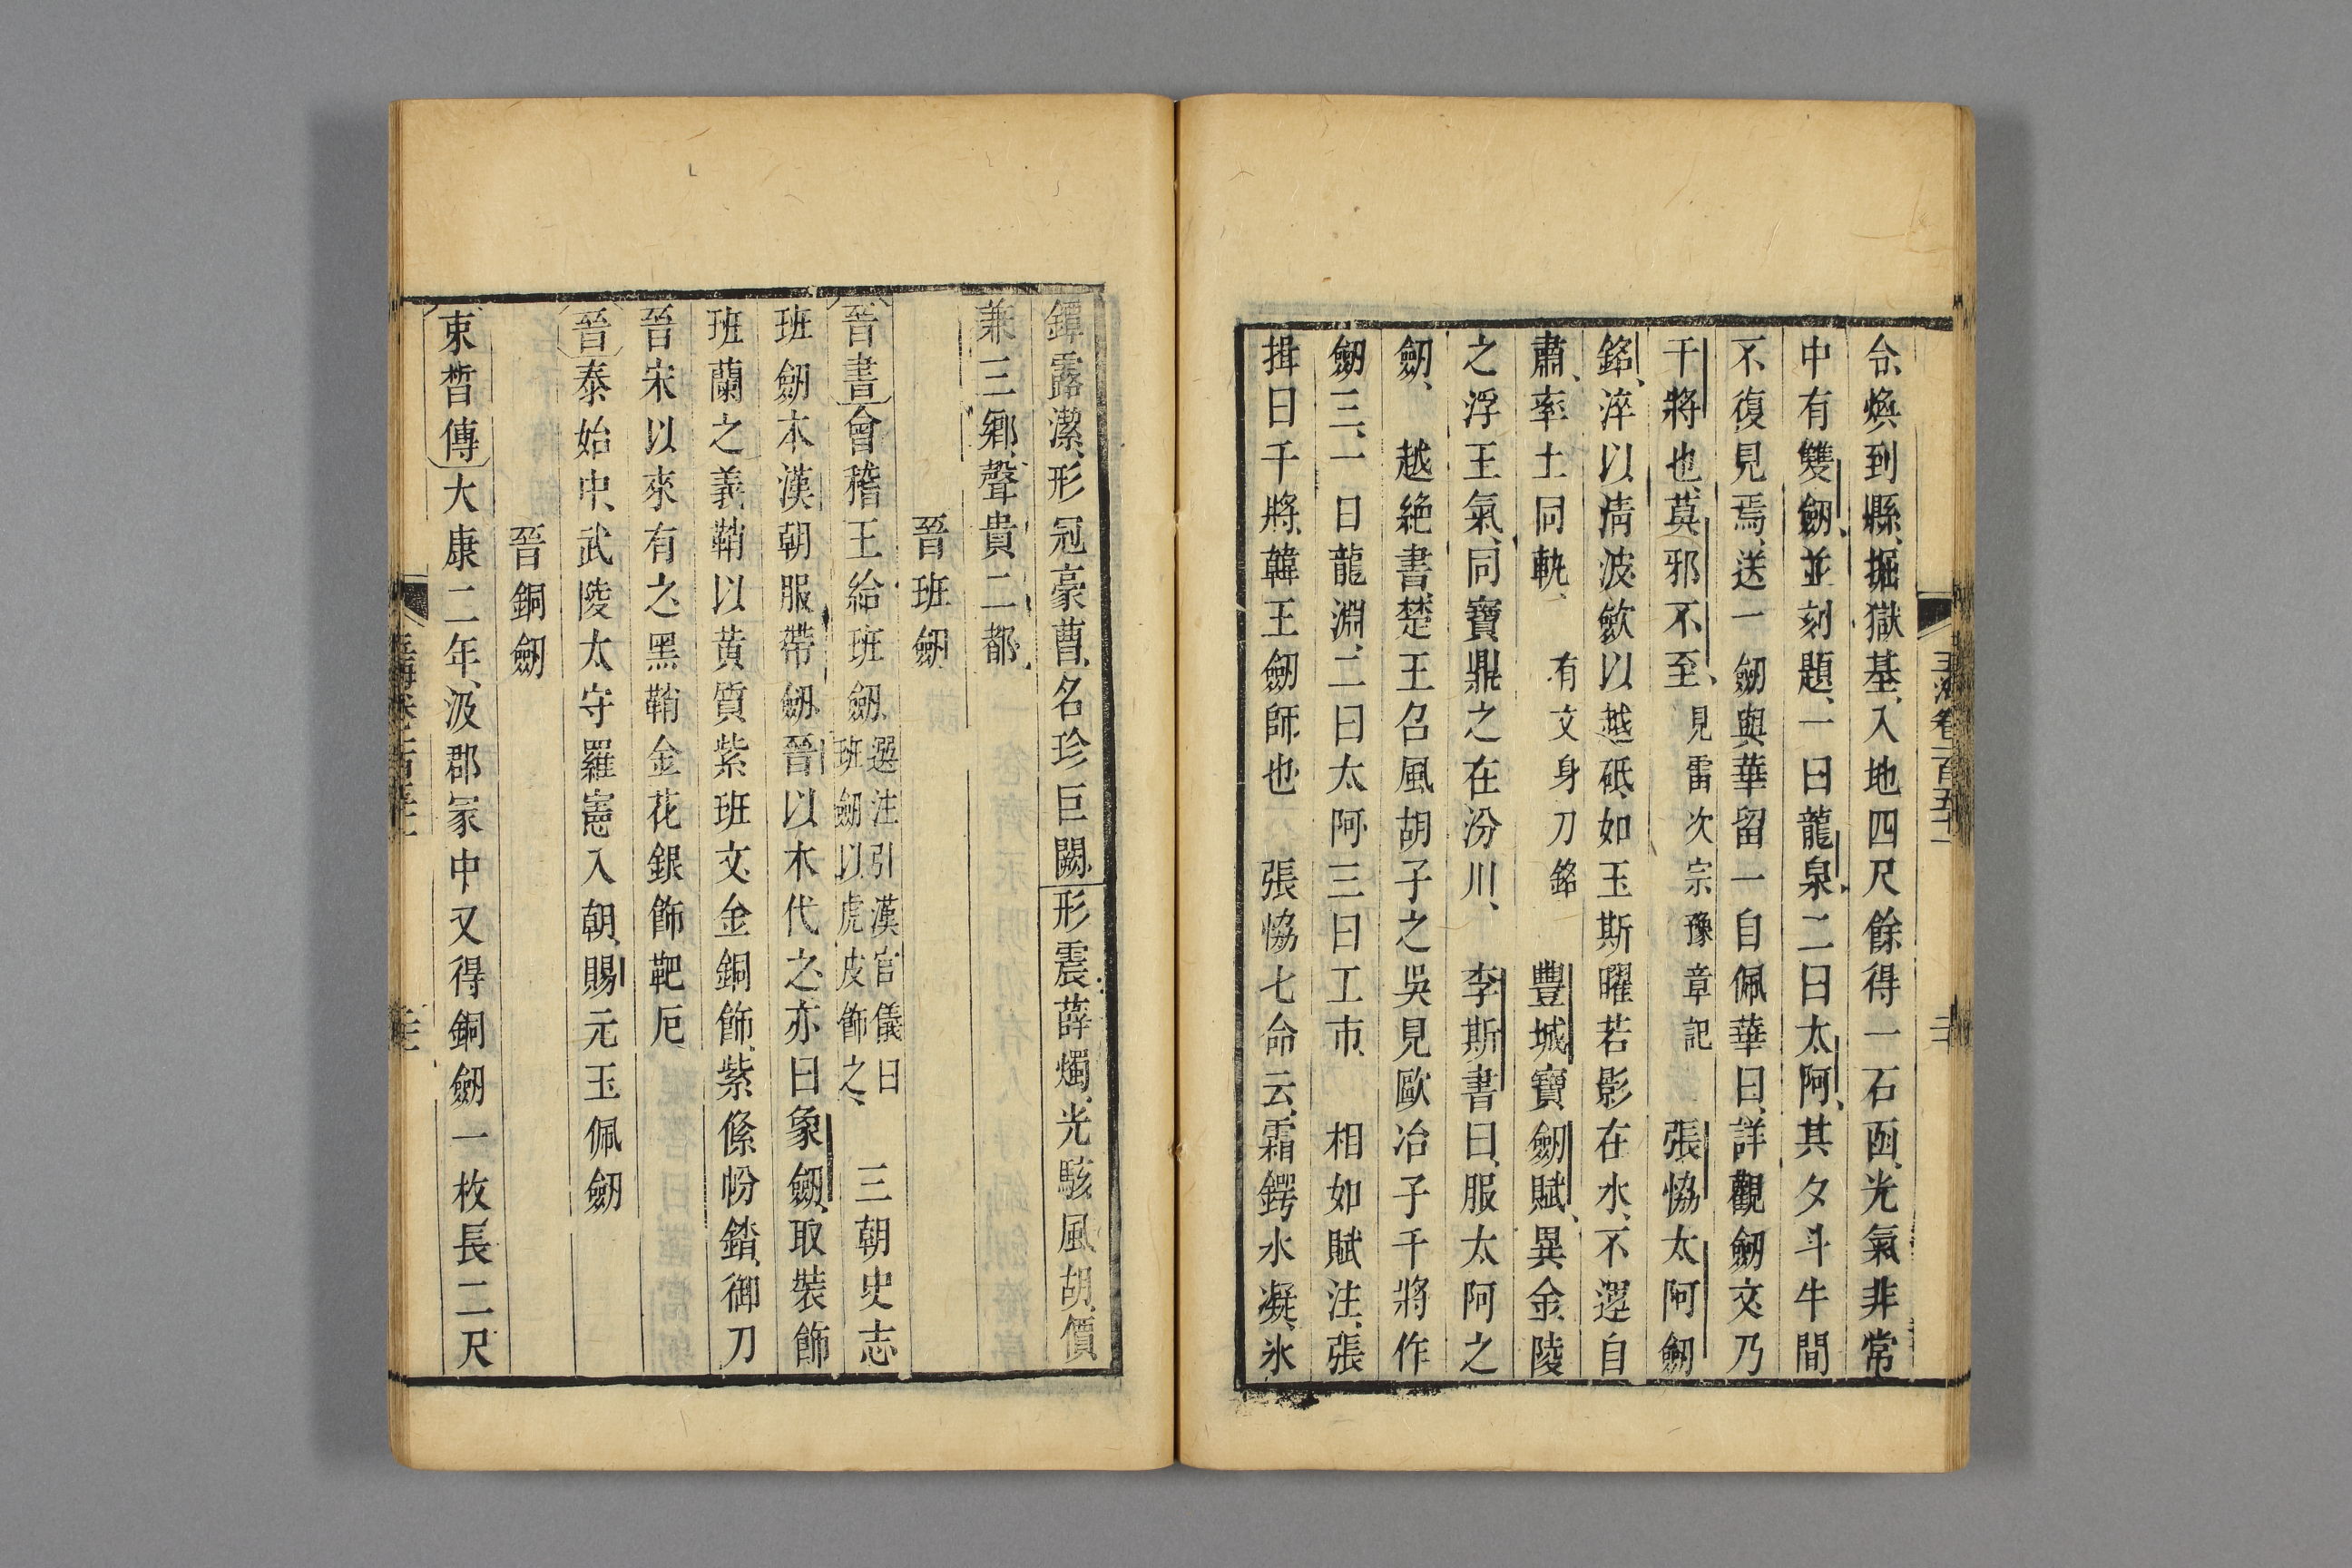 令煥到縣掘獄基入地四尺餘得一石函光氣非常
中有雙劒並刻題一曰龍泉二曰太阿其夕斗牛間
不復見焉送一劒與華留一自佩華曰詳觀劒文乃
干將也莫邪不至見雷次宗豫章記 張恊太阿劒
銘淬以清波歛以越砥如玉斯曜若影在水不運自
肅率土同軌有文身刀銘 豐城寶劒賦異金陵
之浮王氣同寶鼎之在汾川 李斯書曰服太阿之
劒 越絶書楚王召風胡子之吳見歐冶子干將作
劒三一曰龍淵二曰太阿三曰工市 相如賦注張
揖曰干將韓王劒師也 張恊七命云霜鍔水凝氷
玉海卷一百五十一
鐔露潔形冠豪曹名珍巨闕形震薛燭光駭風胡價
兼三鄉聲貴二都
晉班劒
晉書會稽王給班劒選注引漢官儀曰班劒以虎皮飾之 三朝史志
班劒本漢朝服帶劒晉以木代之亦曰象劒取裝飾
班蘭之義鞘以黃質紫班文金銅飾紫絛帉錔御刀
晉宋以來有之黑鞘金花銀飾靶厄
晉泰始中武陵太守羅憲入朝賜元玉佩劒
晉銅劒
束晳傳大康二年汲郡冢中又得銅劒一枚長二尺